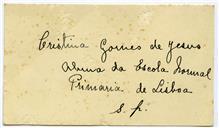 Cristina Gomes de Jesus
Aluna da Escola Normal
Primaria de Lisboa